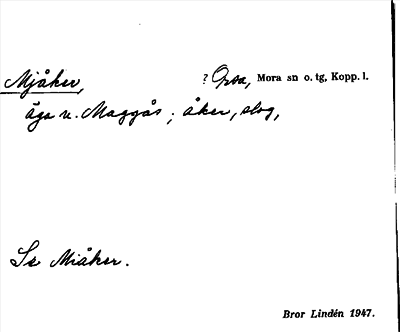 Mjåker, ? Orsa, Mora sn o. tg, Kopp. l.
äga v. Maggås; åker, slog,
Se Miåker.
Bror Lindén 1947.